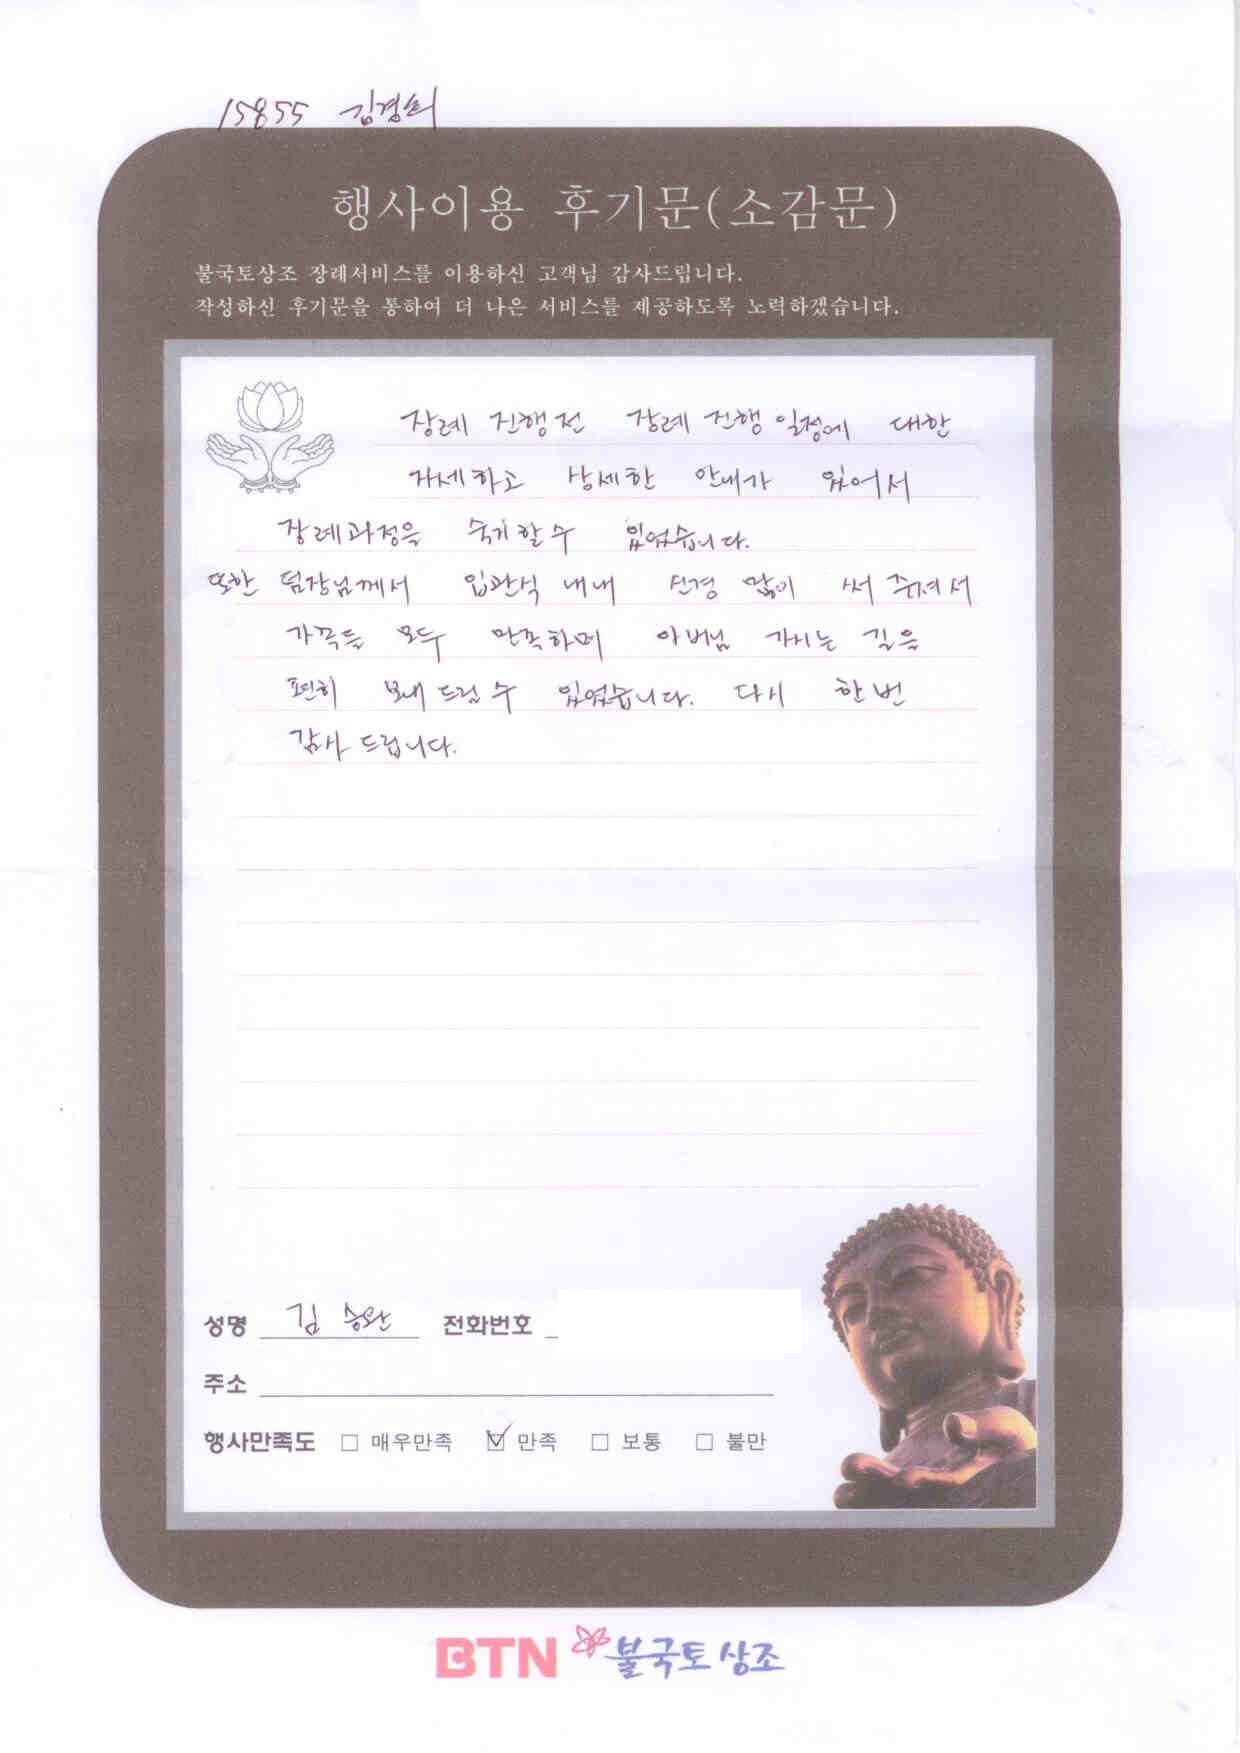 15855 김경희
행사이용 후기문(소감문)
불국토상조 장례서비스를 이용하신 고객님 감사드립니다.
작성하신 후기문을 통하여 더 나은 서비스를 제공하도록 노력하겠습니다.
장례 진행전 장례 진행 일정에 대한
자세하고 상세한 안내가 있어서
장례과정을 숙지할수 있었습니다.
또한 팀장님께서 입관식 내내 신경 많이 써 주셔서
가족들 모두 만족하며 아버님 가시는 길을
편히 보내 드릴 수 있었습니다. 다시 한번
감사 드립니다.
성명 김승완 전화번호
주소
행사만족도 □ 매우만족 ☑ 만족 □ 보통 □ 불만
BTN 불국토상조